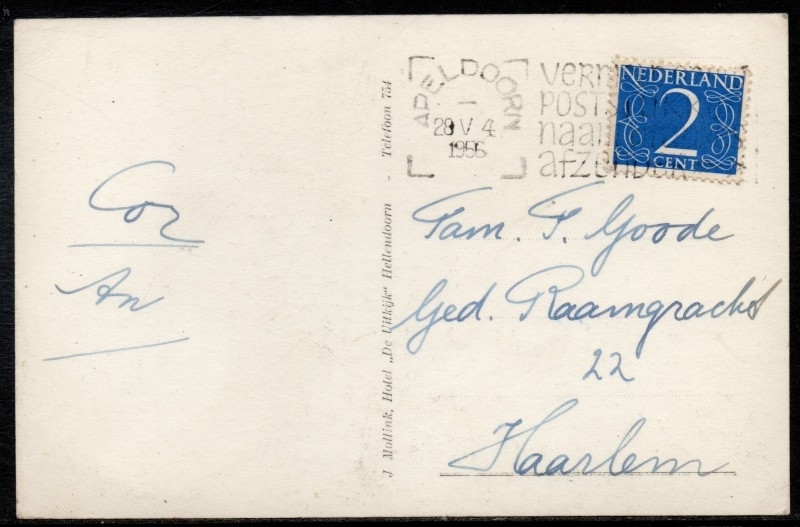 APELDOORN
28 V 4
1956
POST
naar
afzender
NEDERLAND
2
CENT
Cor
An
J Mollink, Hotel „De Uitkijk" Hellendoorn - Telefoon 754
Fam. F. Goode
Ged. Raamgracht
22
Haarlem